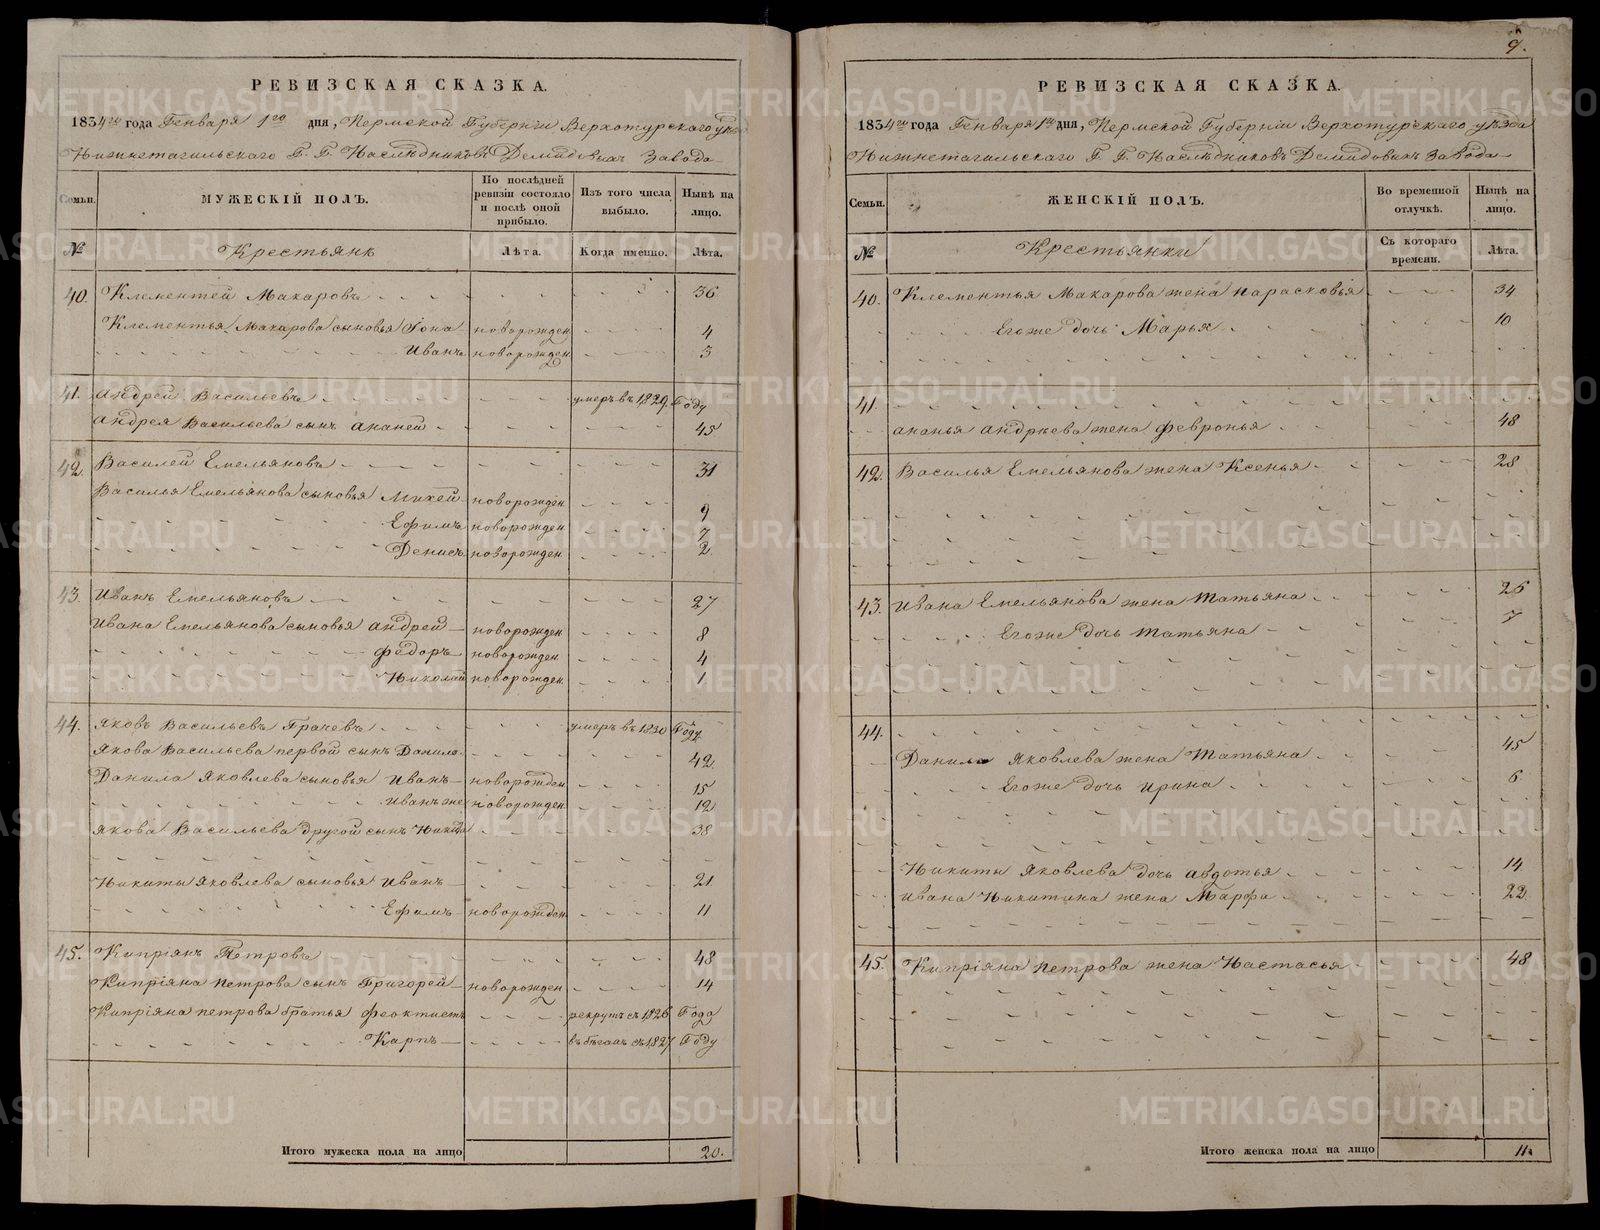 РЕВИЗСКАЯ СКАЗКА.
1834го года Генваря 1го дня, Пермской Губернiи Верхотурского
Нижнетагильского Г. Г. Наслѣдниковъ Демидовыхъ Завода
Семьи.
МУЖЕСКIЙ ПОЛЪ.
По послѣдней ревизiи состояло и послѣ оной прибыло.
Изъ того числа выбыло.
Нынѣ на лицо.
№
Крестьянъ
Лѣта.
Когда именно.
Лѣта.
40. Клементей Макаровъ 36
Клементья Макарова сыновья Iона новорожден 4
Иванъ новорожден 3
41. Андрей Васильевъ умеръ въ 1829. Году
Андрея Васильева сынъ Ананей 45
42. Василей Емельяновъ 31
Василья Емельянова сыновья Михей новорожден 9
Ефимъ новорожден 7
Денисъ новорожден 2
43. Иванъ Емельяновъ 27
Ивана Емельянова сыновья Андрей новорожден 8
Федоръ новорожден 4
Николай новорожден 1
44. Яковъ Васильевъ Грачевъ умеръ въ 1830 Году
Якова Васильева первой сынъ Данило 42
Данила Яковлева сыновья Иванъ новорожден 15
Иванъ же новорожден 12
Якова Васильева другой сынъ Никита 38
Никиты Яковлева сыновья Иванъ 21
Ефимъ новорожден 11
45. Кипрiянъ Петровъ 48
Кипрiяна Петрова сынъ Григорей новорожден 14
Кипрiяна Петрова братья Феоктистъ рекрутъ съ 1826 Года
Карпъ въ бѣгахъ съ 1827 Году
Итого мужеска пола на лицо 20.
9.
РЕВИЗСКАЯ СКАЗКА.
1834го года Генваря 1го дня, Пермской Губернiи Верхотурского уѣзда
Нижнетагильского Г. Г. Наслѣдниковъ Демидовыхъ Завода
Семьи.
ЖЕНСКIЙ ПОЛЪ.
Во временной отлучкѣ.
Нынѣ на лицо.
№
Крестьянки
Съ котораго времени.
Лѣта.
40. Клементья Макарова жена Парасковья 34
Егоже дочь Марья 10
41.
Ананья Андрѣева жена Февронья 48
42. Василья Емельянова жена Ксенья 28
43. Ивана Емельянова жена Татьяна 26
Егоже дочь Татьяна 7
44.
Данила Яковлева жена Татьяна 45
Егоже дочь Ирина 6
Никиты Яковлева дочь Авдотья 14
Ивана Никитина жена Марфа 22
45. Кипрiяна Петрова жена Настасья 48
Итого женска пола на лицо 11.
METRIKI.GASO-URAL.RU